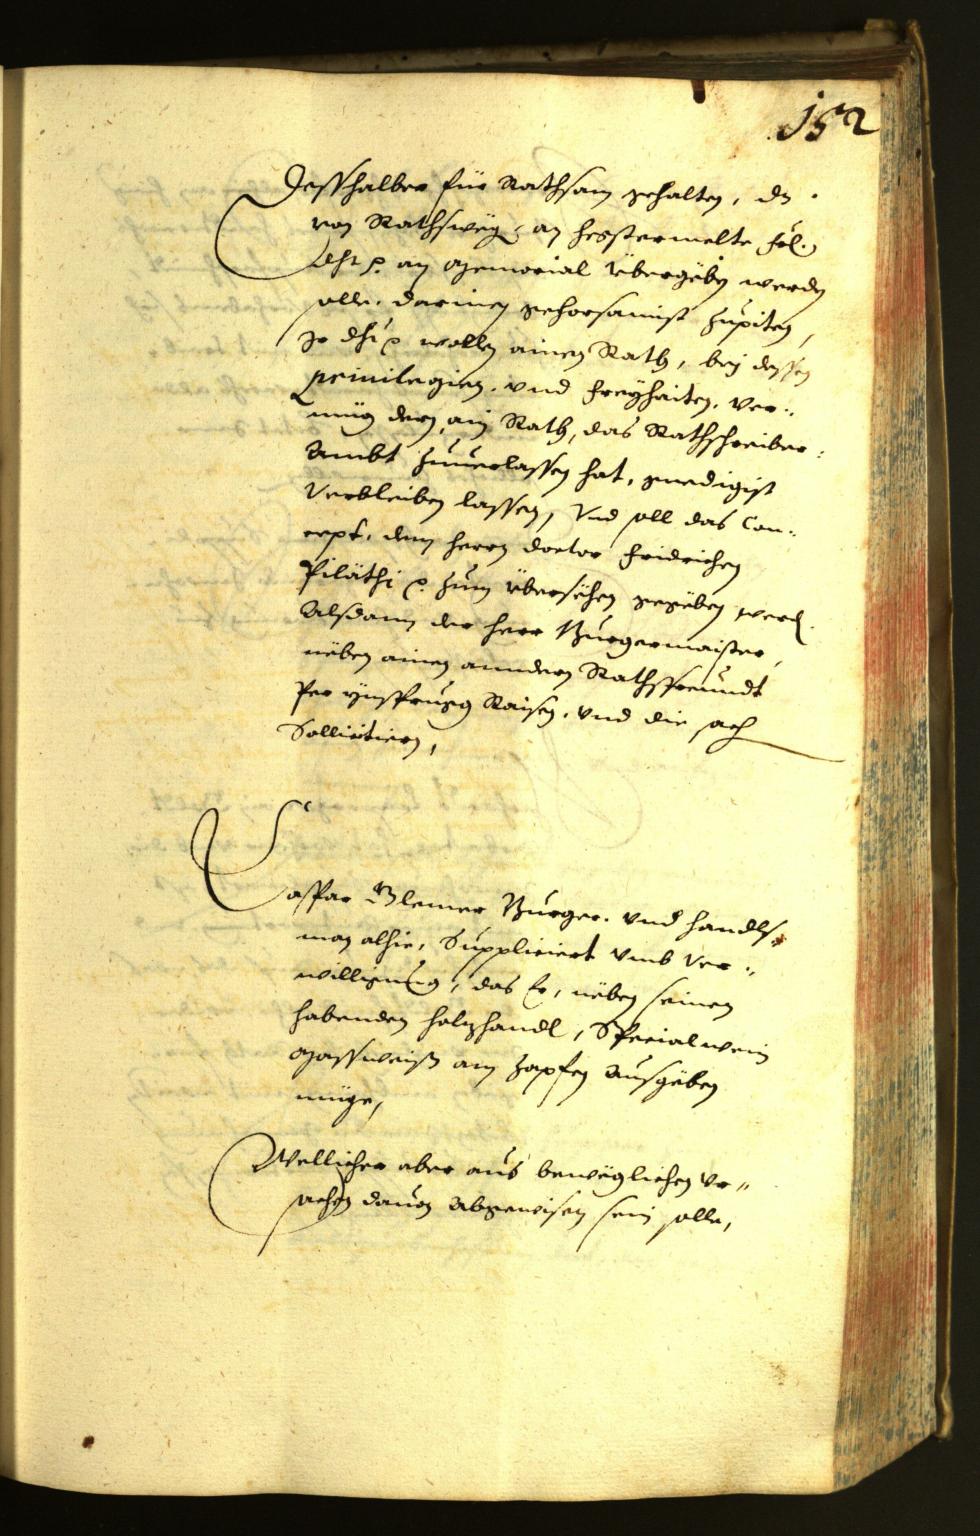 152
Desshalben für Rathsam gehalten, dz
von Rathsweg, an hegstermelte fr̄l.
dht p. ain Memorial übergeben werden
solle, darinen gehorsamist zupiten,
Jr dht p wollen ainen Rath, bej dessen
priuilegien, vnd freyhaiten, ver„
müg deren, ain Rath, das Rathschreiber„
Ambt zuuerlassen hat, gnedigist
verbleiben lassen, Vnd soll das Con„
cept, dem herrn doctor Fridrichen
Piläthi p. zum übersehen gegeben werd.
Alsdann der herr Burgermaister,
neben ainen anndern Rathsfreundt
per ynsprugg Raisen, vnd die sach
Sollicitiern,
Caspar Blemer Burger, vnd handls„
man alhie, Suppliciert vmb ver„
willigung, das Er, neben seinen
habenden holzhandl, Special wein
Massweiß am zapfen ausgeben
müge,
Wellicher aber aus beweglichen vr„
sachen dauon abgewisen sein solle,